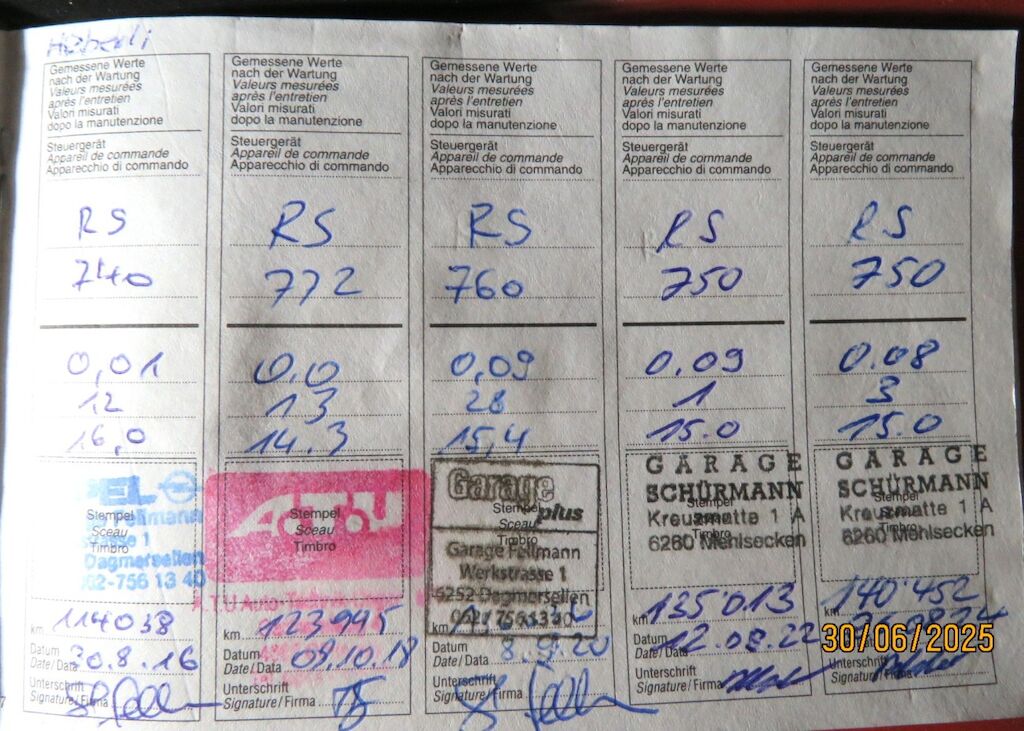 Häberli
Gemessene Werte
nach der Wartung
Valeurs mesurées
après l'entretien
Valori misurati
dopo la manutenzione
Steuergerät
Appareil de commande
Apparecchio di commando
RS
740
0,01
12
16,0
Stempel
Sceau
Timbro
Dagmersellen
62-756 13 40
km 114038
Datum
Date/Data 30.8.16
Unterschrift
Signature/Firma
Gemessene Werte
nach der Wartung
Valeurs mesurées
après l'entretien
Valori misurati
dopo la manutenzione
Steuergerät
Appareil de commande
Apparecchio di commando
RS
772
0,0
13
14.3
A.T.U
Stempel
Sceau
Timbro
km 123995
Datum
Date/Data 09.10.18
Unterschrift
Signature/Firma
Gemessene Werte
nach der Wartung
Valeurs mesurées
après l'entretien
Valori misurati
dopo la manutenzione
Steuergerät
Appareil de commande
Apparecchio di commando
RS
760
0,09
28
15,4
Garage
Stempel
plus
Sceau
Timbro
Garage Fellmann
Werkstrasse 1
6252 Dagmersellen
062 / 756 13 40
km
Datum
Date/Data 8.9.20
Unterschrift
Signature/Firma
Gemessene Werte
nach der Wartung
Valeurs mesurées
après l'entretien
Valori misurati
dopo la manutenzione
Steuergerät
Appareil de commande
Apparecchio di commando
RS
750
0.09
1
15.0
GARAGE
SCHÜRMANN
Stempel
Kreuzmatte 1 A
Timbro
6260 Mehlsecken
km 135'013
Datum
Date/Data 12.08.22
Unterschrift
Signature/Firma
Gemessene Werte
nach der Wartung
Valeurs mesurées
après l'entretien
Valori misurati
dopo la manutenzione
Steuergerät
Appareil de commande
Apparecchio di commando
RS
750
0.08
3
15.0
GARAGE
SCHÜRMANN
Stempel
Kreuzmatte 1 A
Timbro
6260 Mehlsecken
km 140'452
Unterschrift
30/06/2025